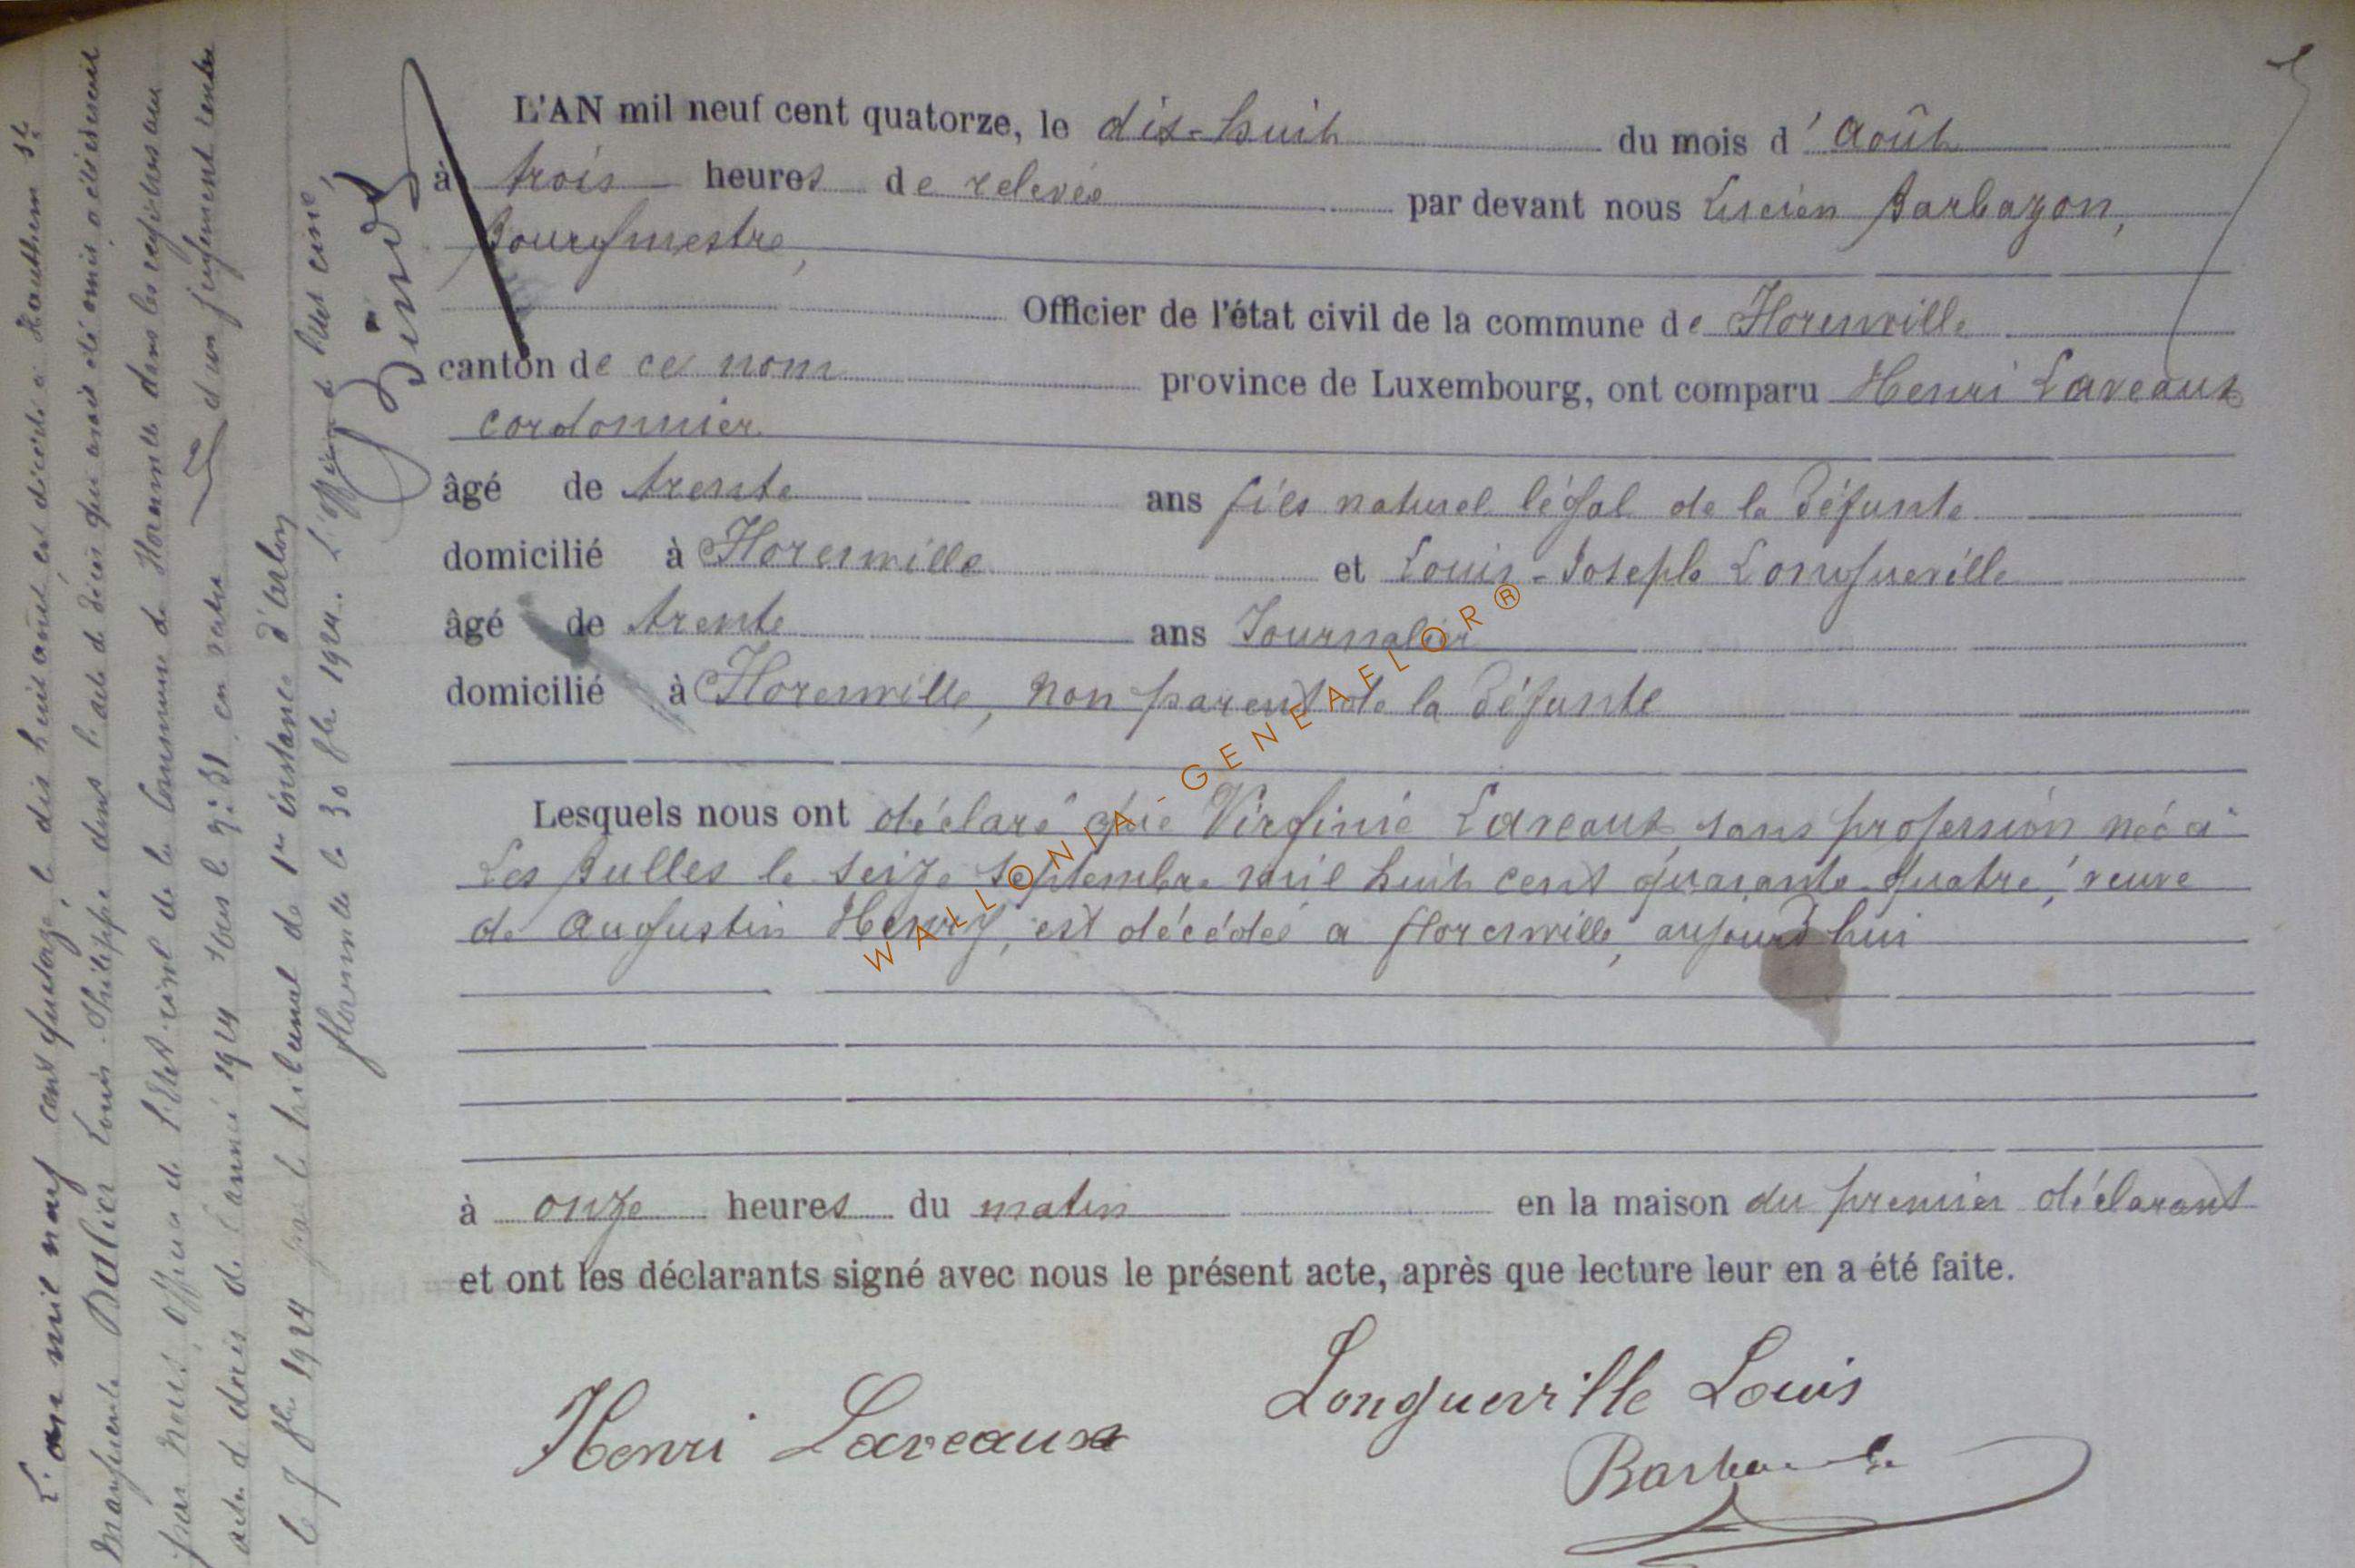 L'AN mil neuf cent quatorze, le dix-huit du mois d'Août
à trois heures de relevée par devant nous Lucien Barbazon,
Bourgmestre,
Officier de l'état civil de la commune de Florenville
canton de ce nom province de Luxembourg, ont comparu Henri Laveaux
cordonnier
âgé de trente ans fils naturel légal de la défunte
domicilié à Florenville et Louis-Joseph Longueville
âgé de trente ans Journalier
domicilié à Florenville, non parent de la défunte
Lesquels nous ont déclaré que Virginie Laveaux, sans profession née à
Les Bulles le seize septembre mil huit cent quarante-quatre, veuve
de Augustin Henry, est décédée a florenville, aujourd'hui
à onze heures du matin en la maison du premier déclarant
et ont les déclarants signé avec nous le présent acte, après que lecture leur en a été faite.
Henri Laveaux
Longueville Louis
L'an mil neuf cent quatorze, le dix huit août est décédé à Hauthem St
Louis Philippe dans l'acte de décès qui avait été omis, a été dressé
par nous, officier de l'Etat-civil de la Commune de Florenville dans les registres aux
actes de décès de l'année 1924 sous le n° 31, en vertu d'un jugement rendu
le 7 1924 par le tribunal de 1re instance d'Arlon
florenville le 30 1924. L'officier de l'état civil,
WALLONIA-GENEAFLOR®